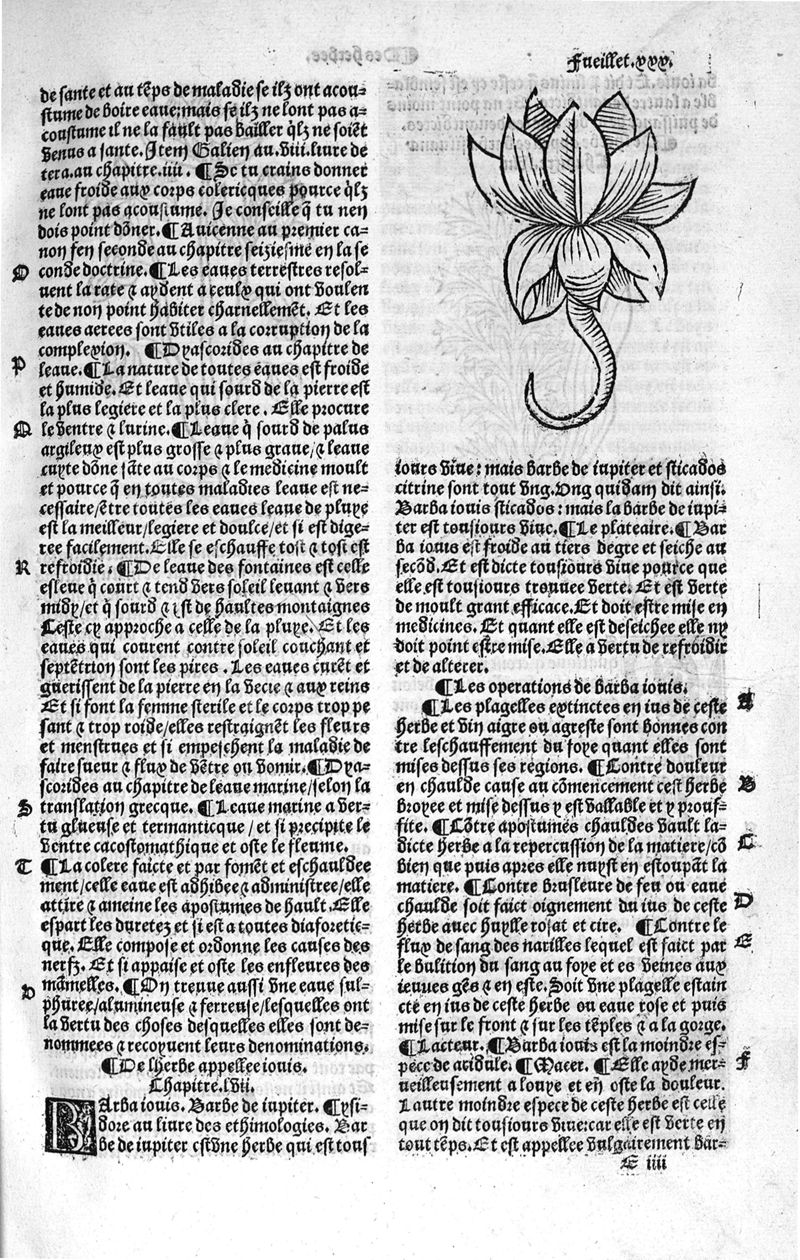 Fueillet.xxx.
de sante et au tẽps de maladie se ilz ont acou-
stume de boire eaue; mais se ilz ne lont pas a-
coustume il ne la fault pas bailler q̃lz ne soiẽt
venus a sante. Item Galien au .viii. livre de
tera. au chapitre .iiii. ¶ Se tu crains donner
eaue froide aux corps colericques pource q̃lz
ne lont pas acoustume. Je conseille q̃ tu nen
dois point dõner. ¶ Auicenne au premier ca-
non fen seconde au chapitre seiziesme en la se
O conde doctrine. ¶ Les eaues terrestres resol-
uent la rate ⁊ aydent a ceulx qui ont voulen
te de non point habiter charnellemẽt. Et les
eaues aerees sont vtiles a la corruption de la
complexion. ¶ Dyascorides au chapitre de
P leaue. ¶ La nature de toutes eaues est froide
et humide. Et leaue qui sourd de la pierre est
la plus legiere et la plus clere. Elle procure
Q le ventre ⁊ lurine. ¶ Leaue q̃ sourd de palus
argileux est plus grosse ⁊ plus graue/⁊ leaue
cuyte dõne sãte au corps ⁊ le medicine moult
et pource q̃ en toutes maladies leaue est ne-
cessaire/ẽtre toutes les eaues leaue de pluye
est la meilleur/legiere et doulce/et si est dige-
ree facilement. Elle se eschauffe tost ⁊ tost est
R refroidie. ¶ De leaue des fontaines est celle
esleue q̃ court ⁊ tend vers soleil leuant ⁊ vers
midy/et q̃ sourd ⁊ ist de haultes montaignes
Ceste cy approche a celle de la pluye. Et les
eaues qui courent contre soleil couchant et
septẽtrion sont les pires. Les eaues curẽt et
guerissent de la pierre en la vecie ⁊ aux reins
Et si font la femme sterile et le corps trop pe
sant ⁊ trop roide/elles restraignẽt les fleurs
et menstrues et si empeschent la maladie de
faire sueur ⁊ flux de vẽtre ou vomir. ¶ Dya-
scorides au chapitre de leaue marine/selon la
S translation grecque. ¶ Leaue marine a ver-
tu glueuse et termanticque/et si precipite le
ventre cacostomathique et oste le fleume.
T ¶ La colere faicte et par fomẽt et eschauldee
ment/celle eaue est adhibee ⁊ administree/elle
attire ⁊ ameine les apostumes de hault. Elle
espart les duretez et si est a toutes diaforetic-
que. Elle compose et ordonne les causes des
nerfz. Et si appaise et oste les enfleures des
v mãmelles. ¶ On treuue aussi vne eaue sul-
phuree/alumineuse ⁊ ferreuse/lesquelles ont
la vertu des choses desquelles elles sont de-
nommees ⁊ recoyuent leurs denominations.
¶ De lherbe appellee iouis.
Chapitre .lvii.
BArba iouis. Barbe de iupiter. ¶ ysi-
dore au liure des ethimologies. Bar
be de iupiter est vne herbe qui est tous
iours viue: mais barbe de iupiter et sticados
citrine sont tout vng. Ong quidam dit ainsi.
Barba iouis sticados: mais la barbe de iupi-
ter est tousiours viue. ¶ Le plateaire. ¶ Bar
ba iouis est froide au tiers degre et seiche au
secõd. Et est dicte tousiours viue pource que
elle est tousiours trouuee verte. Et est verte
de moult grant efficace. Et doit estre mise en
medicines. Et quant elle est deseichee elle ny
doit point estre mise. Elle a vertu de refroidir
et de alterer.
¶ Les operations de barba iouis.
¶ Les plagelles extinctes en ius de ceste A
herbe et vin aigre ou agreste sont bonnes con
tre leschauffement du foye quant elles sont
mises dessus ses regions. ¶ Contre douleur
en chaulde cause au cõmencement cest herbe B
broyee et mise dessus y est vallable et y prouf-
fite. ¶ Cõtre apostumes chauldes vault la-
dicte herbe a la repercussion de la matiere/cõ C
bien que puis apres elle nuyst en estoupãt la
matiere. ¶ Contre brusleure de feu ou eaue
chaulde soit faict oignement du ius de ceste D
herbe auec huylle rosat et cire. ¶ Contre le
flux de sang des narilles lequel est faict par E
le bulition du sang au foye et es veines aux
ieunes gẽs ⁊ en este. Soit vne plagelle estain
cte en ius de ceste herbe ou eaue rose et puis
mise sur le front ⁊ sur les tẽples ⁊ a la gorge.
¶ Lacteur. ¶ Barba iouis est la moindre es-
pece de acidule. ¶ Macer. ¶ Elle ayde mer- F
ueilleusement a louye et en oste la douleur.
Lautre moindre espece de ceste herbe est celle
que on dit tousiours viue: car elle est verte en
tout tẽps. Et est appellee vulgairement bar-
E iiii